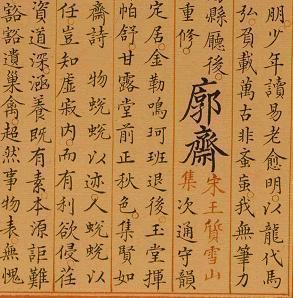 朋。少年讀易老愈明。以龍代馬
弘。負載萬古非蚉䖟。我無筆力
縣廳後。
重修。
廓齋 宋王質雪山
集 次通守韻
定居。金勒鳴珂班退後。玉堂揮
帕舒。甘露堂前正秋色。集賢如
齋詩 物蛻蛻以迹。人蛻蛻以
任。豈知虛寂内。而有利欲侵。荏
資道深。涵養既有素。本源詎難
豁豁遺巢禽。超然事物表。無愧